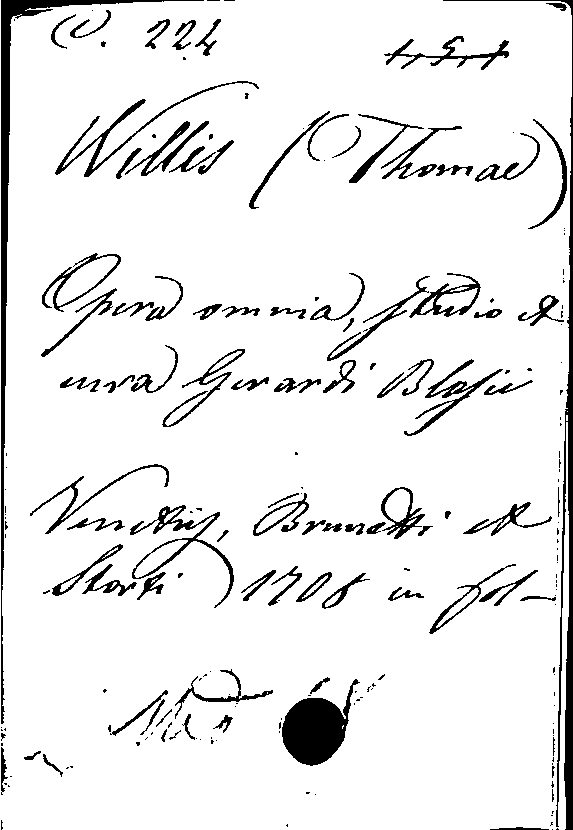 C. 224
1, 5, 7
Willis (Thomae)
Opera omnia, studio et
cura Gerardi Blasii
Venetijs, Brunetti et
Storti 1708 in fol-